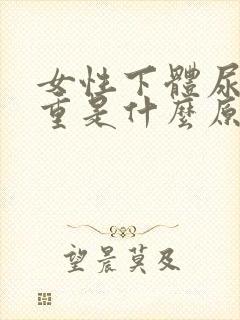 女性下體尿
重是什麼原
望晨莫及